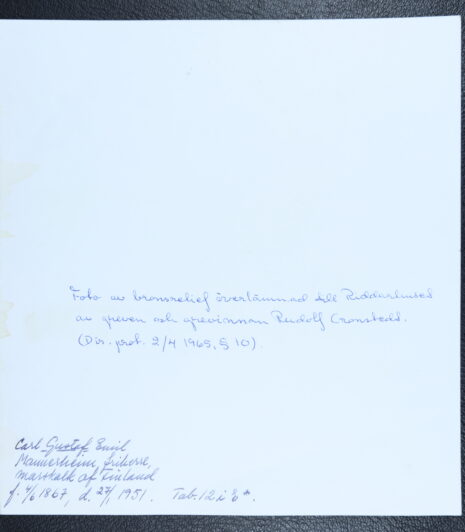 Foto av bronsrelief överlämnad till Riddarhuset
av greven och grevinnan Rudolf Cronstedt.
(Dir. prot. 2/4 1965, § 10).
Carl Gustaf Emil
Mannerheim, friherre,
marskalk af Finland
f. 4/6 1867, d. 27/1 1951. Tab. 12 i E*.